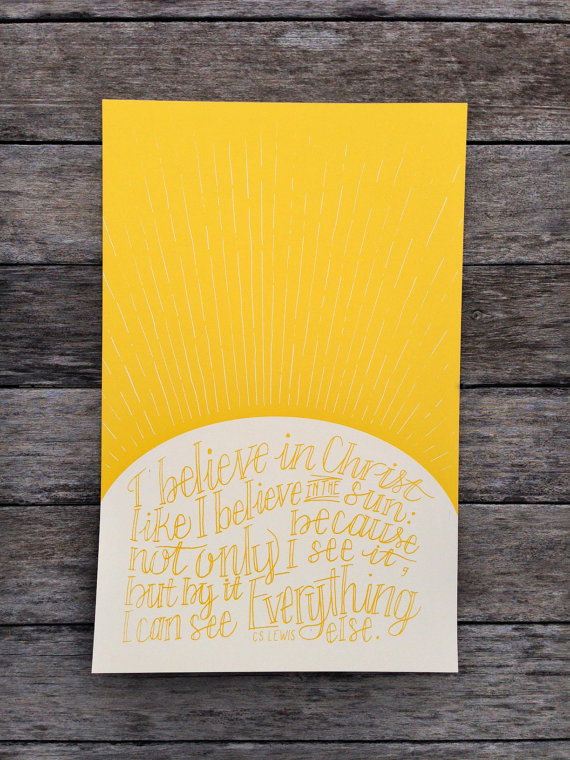 I believe in Christ
like I believe IN THE sun:
not only because
I see it,
but by it Everything
I can see else.
CS LEWIS